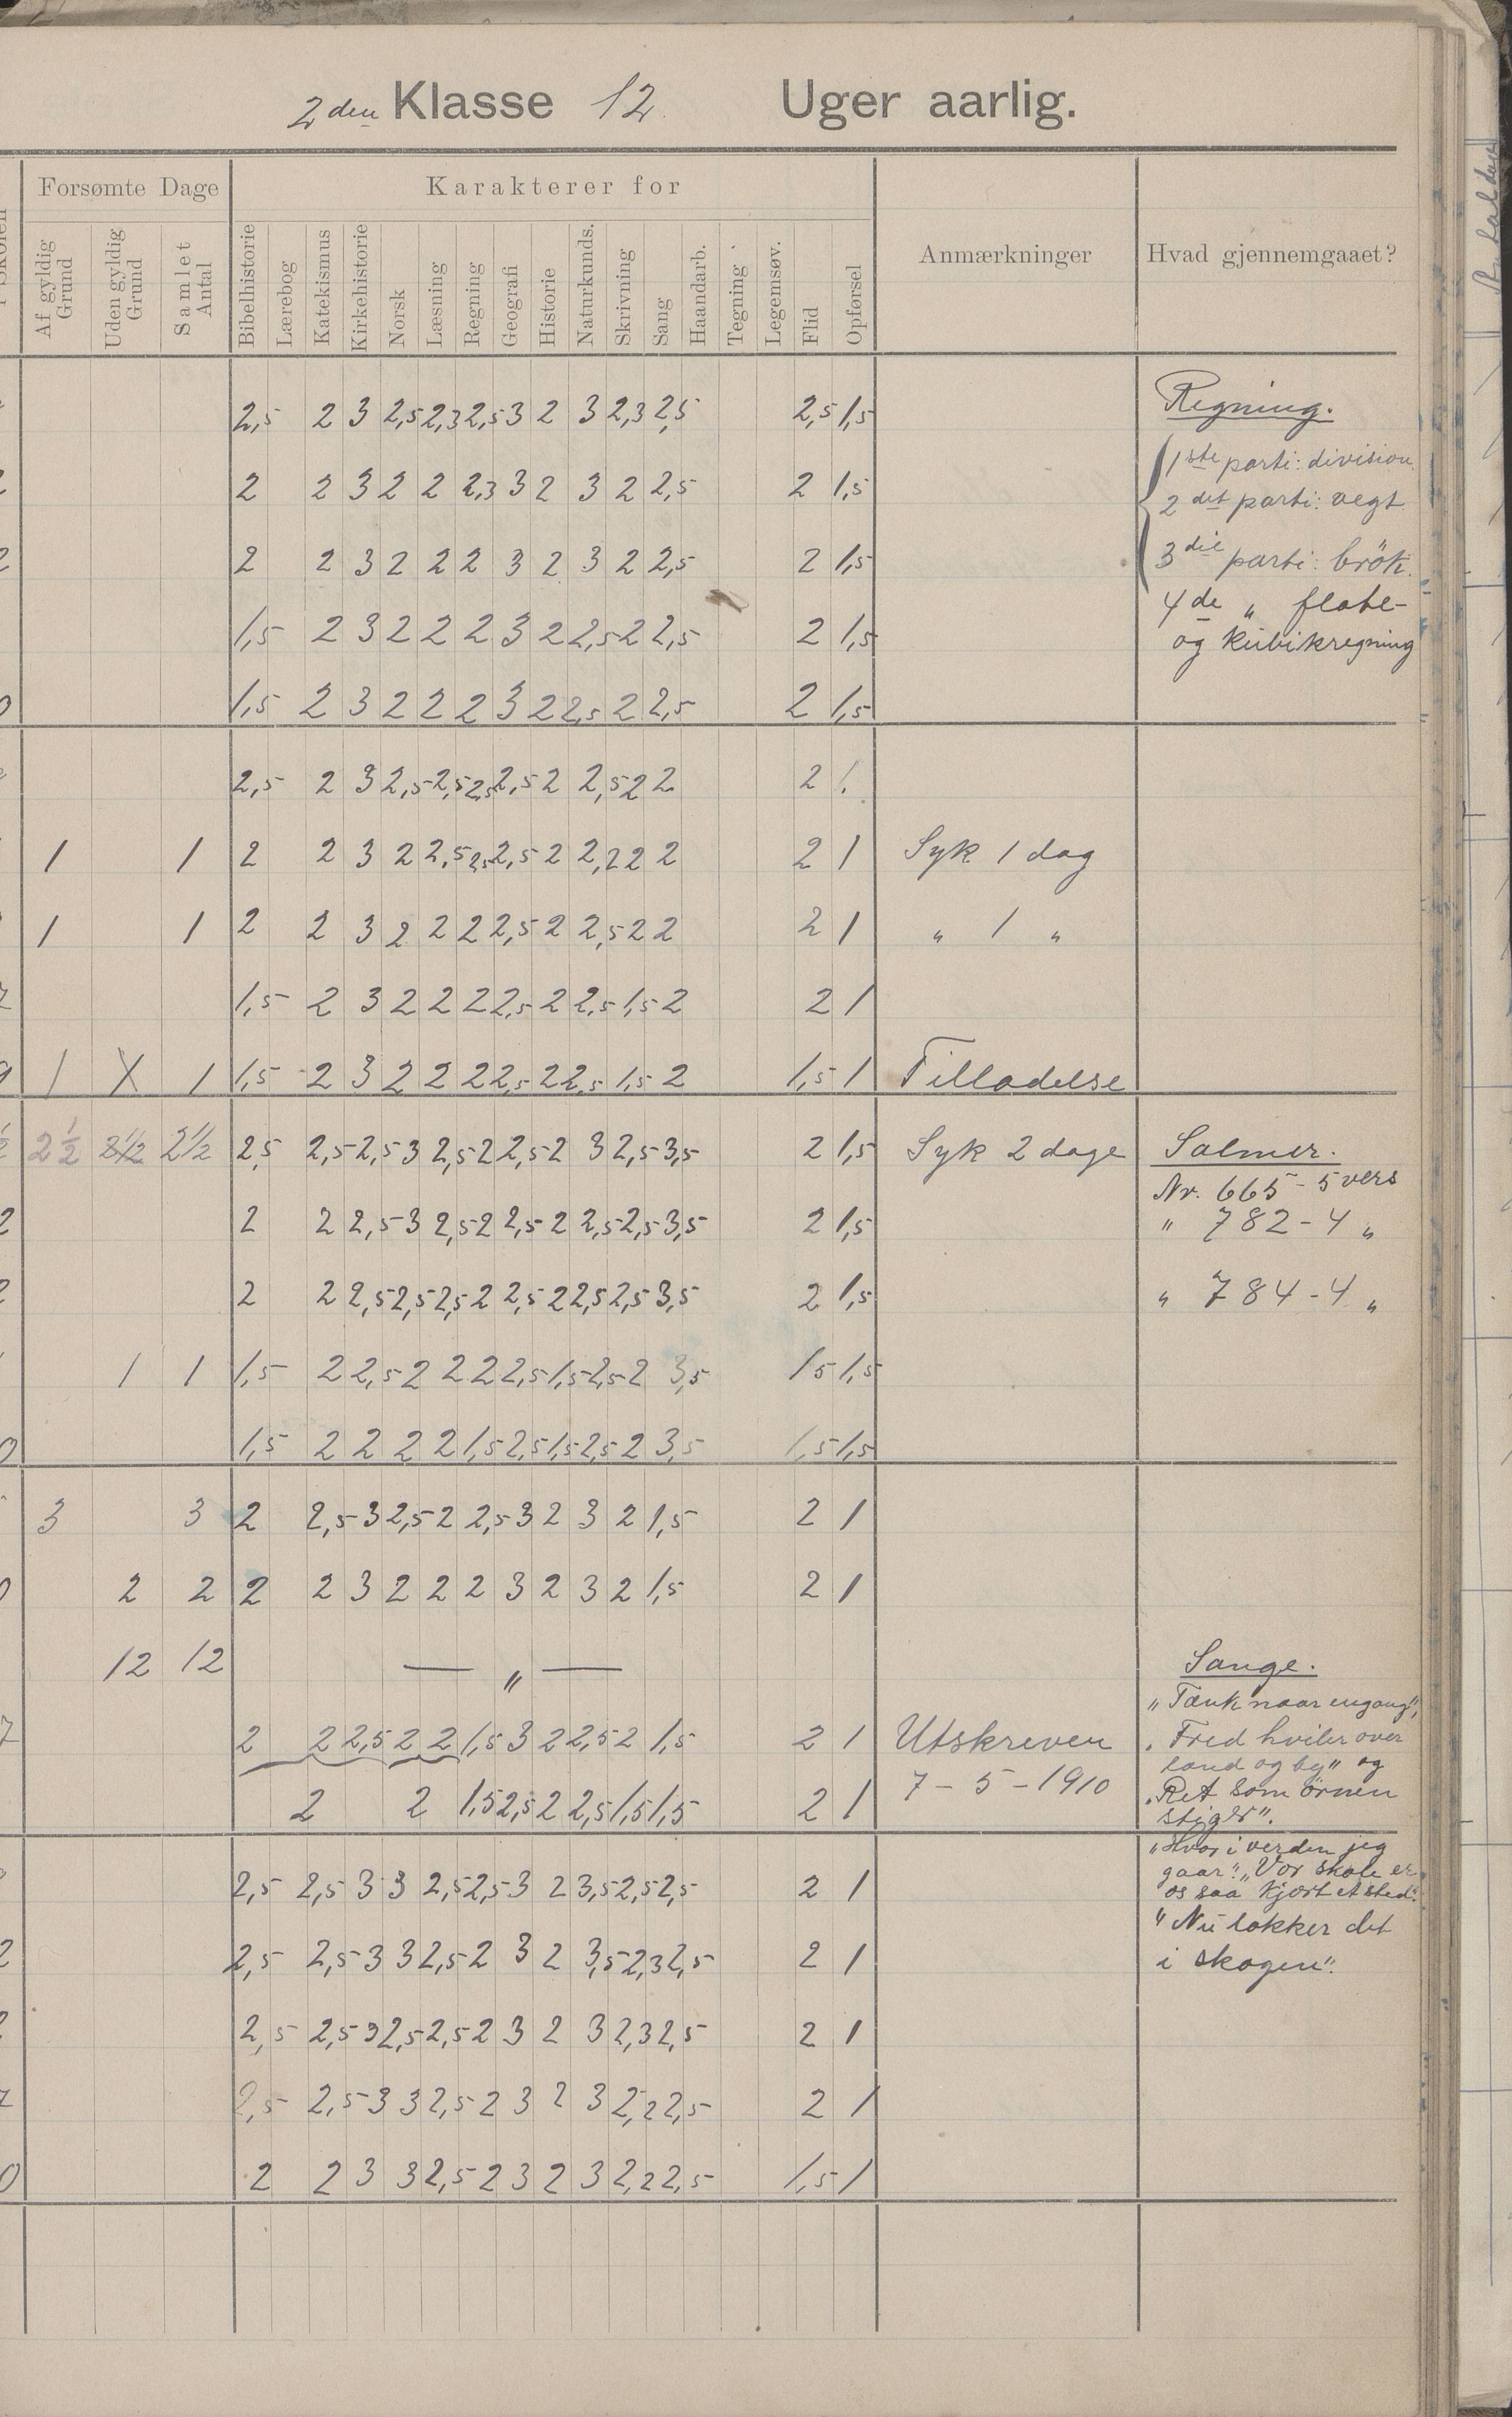 2den Klasse 12 Uger aarlig.
Forsømte Dage Karakterer for Anmærkninger Hvad gjennemgaaet?
Af gyldig Grund Uden gyldig Grund Samlet Antal Bibelhistorie Lærebog Katekismus Kirkehistorie Norsk Læsning Regning Geografi Historie Naturkunds. Skrivning Sang Haandarb. Tegning Legemsøv. Flid Opførsel
2,5 2 3 2,5 2,3 2,5 3 2 3 2,3 2,5 2,5 1,5 Regning.
1ste parti: division
2 2 3 2 2 2,3 3 2 3 2 2,5 2 1,5 2det parti: vegt
2 2 3 2 2 2 3 2 3 2 2,5 2 1,5 3die parti: brök.
4de " flate-
1,5 2 3 2 2 2 3 2 2,5 2 2,5 2 1,5 og kubikregning
1,5 2 3 2 2 2 3 2 2,5 2 2,5 2 1,5
2,5 2 3 2,5 2,5 2,5 2,5 2 2,5 2 2 2 1
1 1 2 2 3 2 2,5 2,5 2,5 2 2,2 2 2 2 1 Syk 1 dag
1 1 2 2 3 2 2 2 2,5 2 2,5 2 2 2 1 " 1 "
1,5 2 3 2 2 2 2,5 2 2,5 1,5 2 2 1
1 1 1,5 2 3 2 2 2 2,5 2 2,5 1,5 2 1,5 1 Tilladelse
2 1/2 2 1/2 2 1/2 2,5 2,5 2,5 3 2,5 2 2,5 2 3 2,5 3,5 2 1,5 Syk 2 dage Salmer.
Nr. 665 - 5 vers
2 2 2,5 3 2,5 2 2,5 2 2,5 2,5 3,5 2 1,5 " 782 - 4 "
2 2 2,5 2,5 2,5 2 2,5 2 2,5 2,5 3,5 2 1,5 " 784 - 4 "
1 1 1,5 2 2,5 2 2 2 2,5 1,5 2,5 2 3,5 1,5 1,5
1,5 2 2 2 2 1,5 2,5 1,5 2,5 2 3,5 1,5 1,5
3 3 2 2,5 3 2,5 2 2,5 3 2 3 2 1,5 2 1
2 2 2 2 3 2 2 2 3 2 3 2 1,5 2 1
12 12 — " — Sange.
"Tænk naar engang",
2 2 2,5 2 2 1,5 3 2 2,5 2 1,5 2 1 Utskreven "Fred hviler over
land og by" og
2 2 1,5 2,5 2 2,5 1,5 1,5 2 1 7 - 5 - 1910 "Ret som örnen
stiger".
"Hvor i verden jeg
2,5 2,5 3 3 2,5 2,5 3 2 3,5 2,5 2,5 2 1 gaar". "Vor skole er
os saa kjært et sted".
"Nu lokker det
2,5 2,5 3 3 2,5 2 3 2 3,5 2,3 2,5 2 1 i skogen".
2,5 2,5 3 2,5 2,5 2 3 2 3 2,3 2,5 2 1
2,5 2,5 3 3 2,5 2 3 2 3 2,2 2,5 2 1
2 2 3 3 2,5 2 3 2 3 2,2 2,5 1,5 1